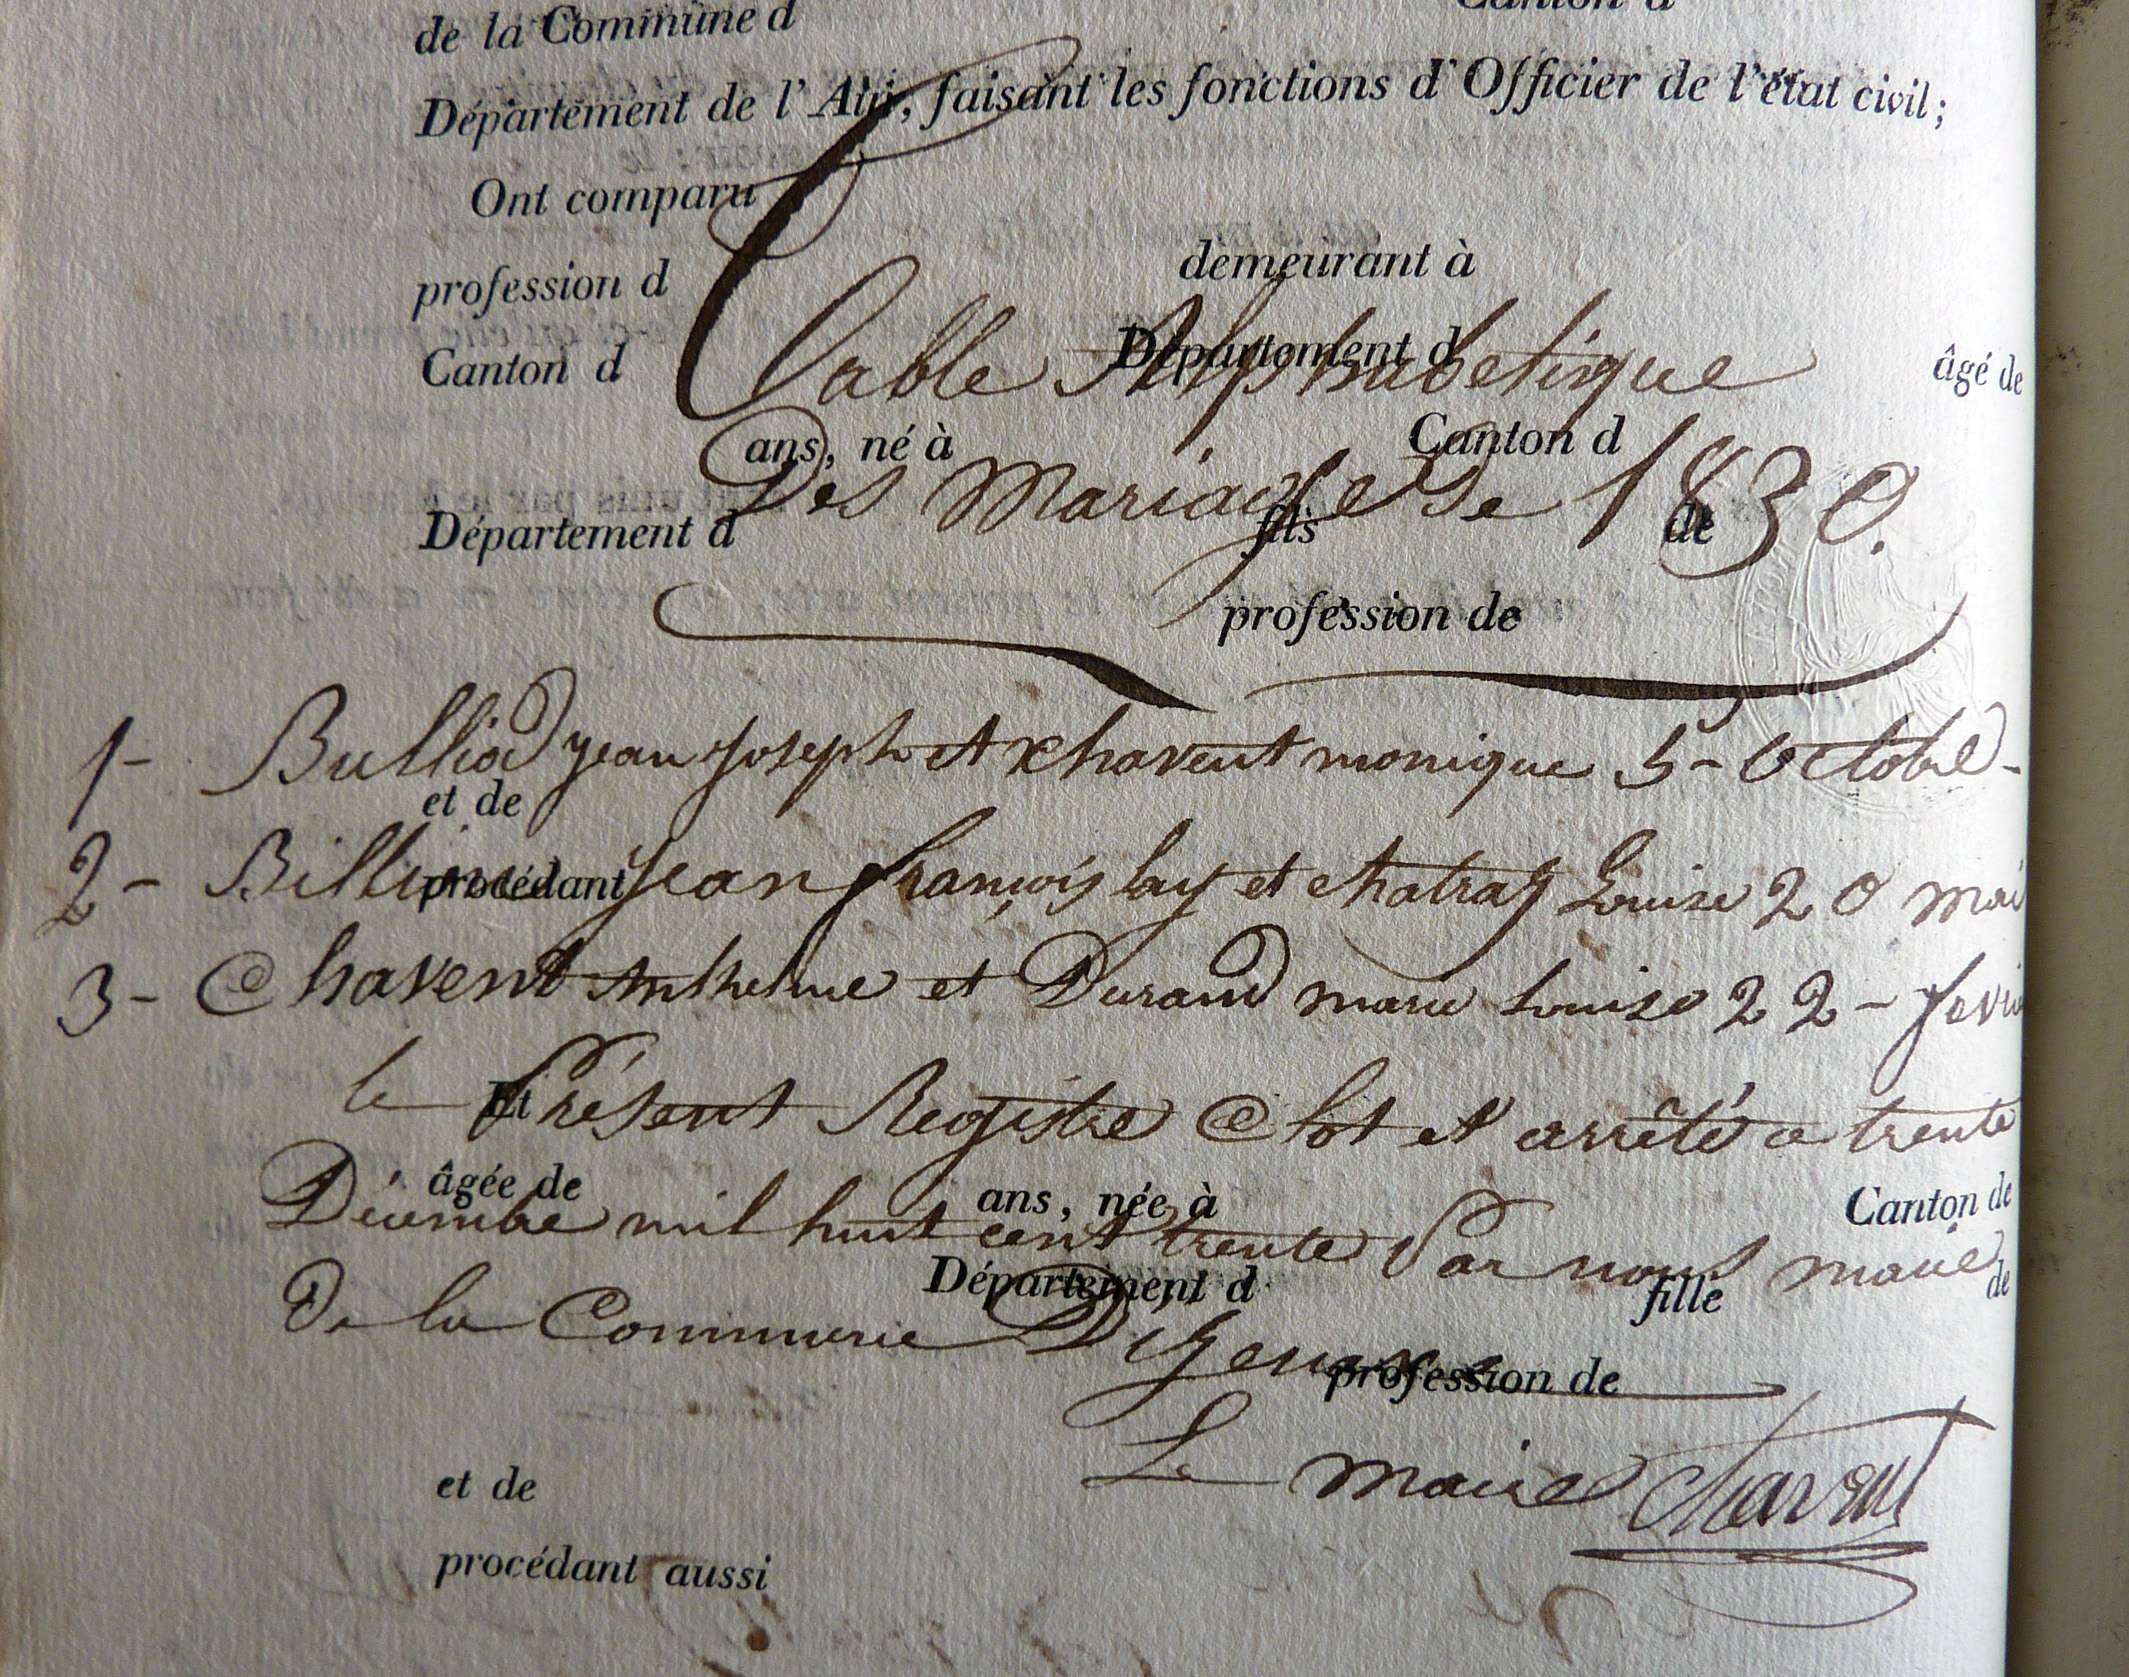 de la Commune d Canton d
Département de l'Ain, faisant les fonctions d'Officier de l'état civil;
Ont comparu
profession d demeurant à
Canton d Département d âgé de
Table Alphabetique
ans, né à Canton d
Des Mariages de 1830.
Département d fils de
profession de
1- Bulliod jean joseph et Chavent monique 5 - Octobre -
et de
2 - Jean françois lay et Chatraz Louise 20 mai
procédant
3 - Chavent Anthelme et Durand marie Louise 22 - fevrie
le Présent Registre Clot et arrêté ce trente
Et
âgée de ans, née à Canton de
Décembre mil huit cent trente Par nous maire
Département d fille de
De la Commune D
profession de
Le maire Chavent
et de
procédant aussi